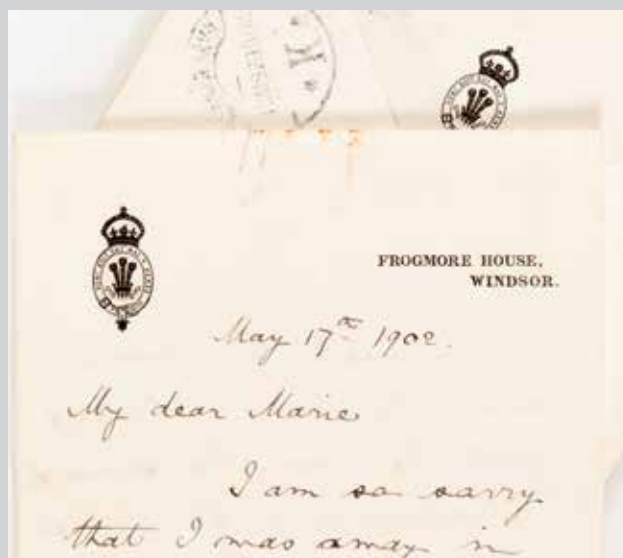 FROGMORE HOUSE,
WINDSOR.
May 17th 1902.
My dear Marie
I am so sorry
that I was away in